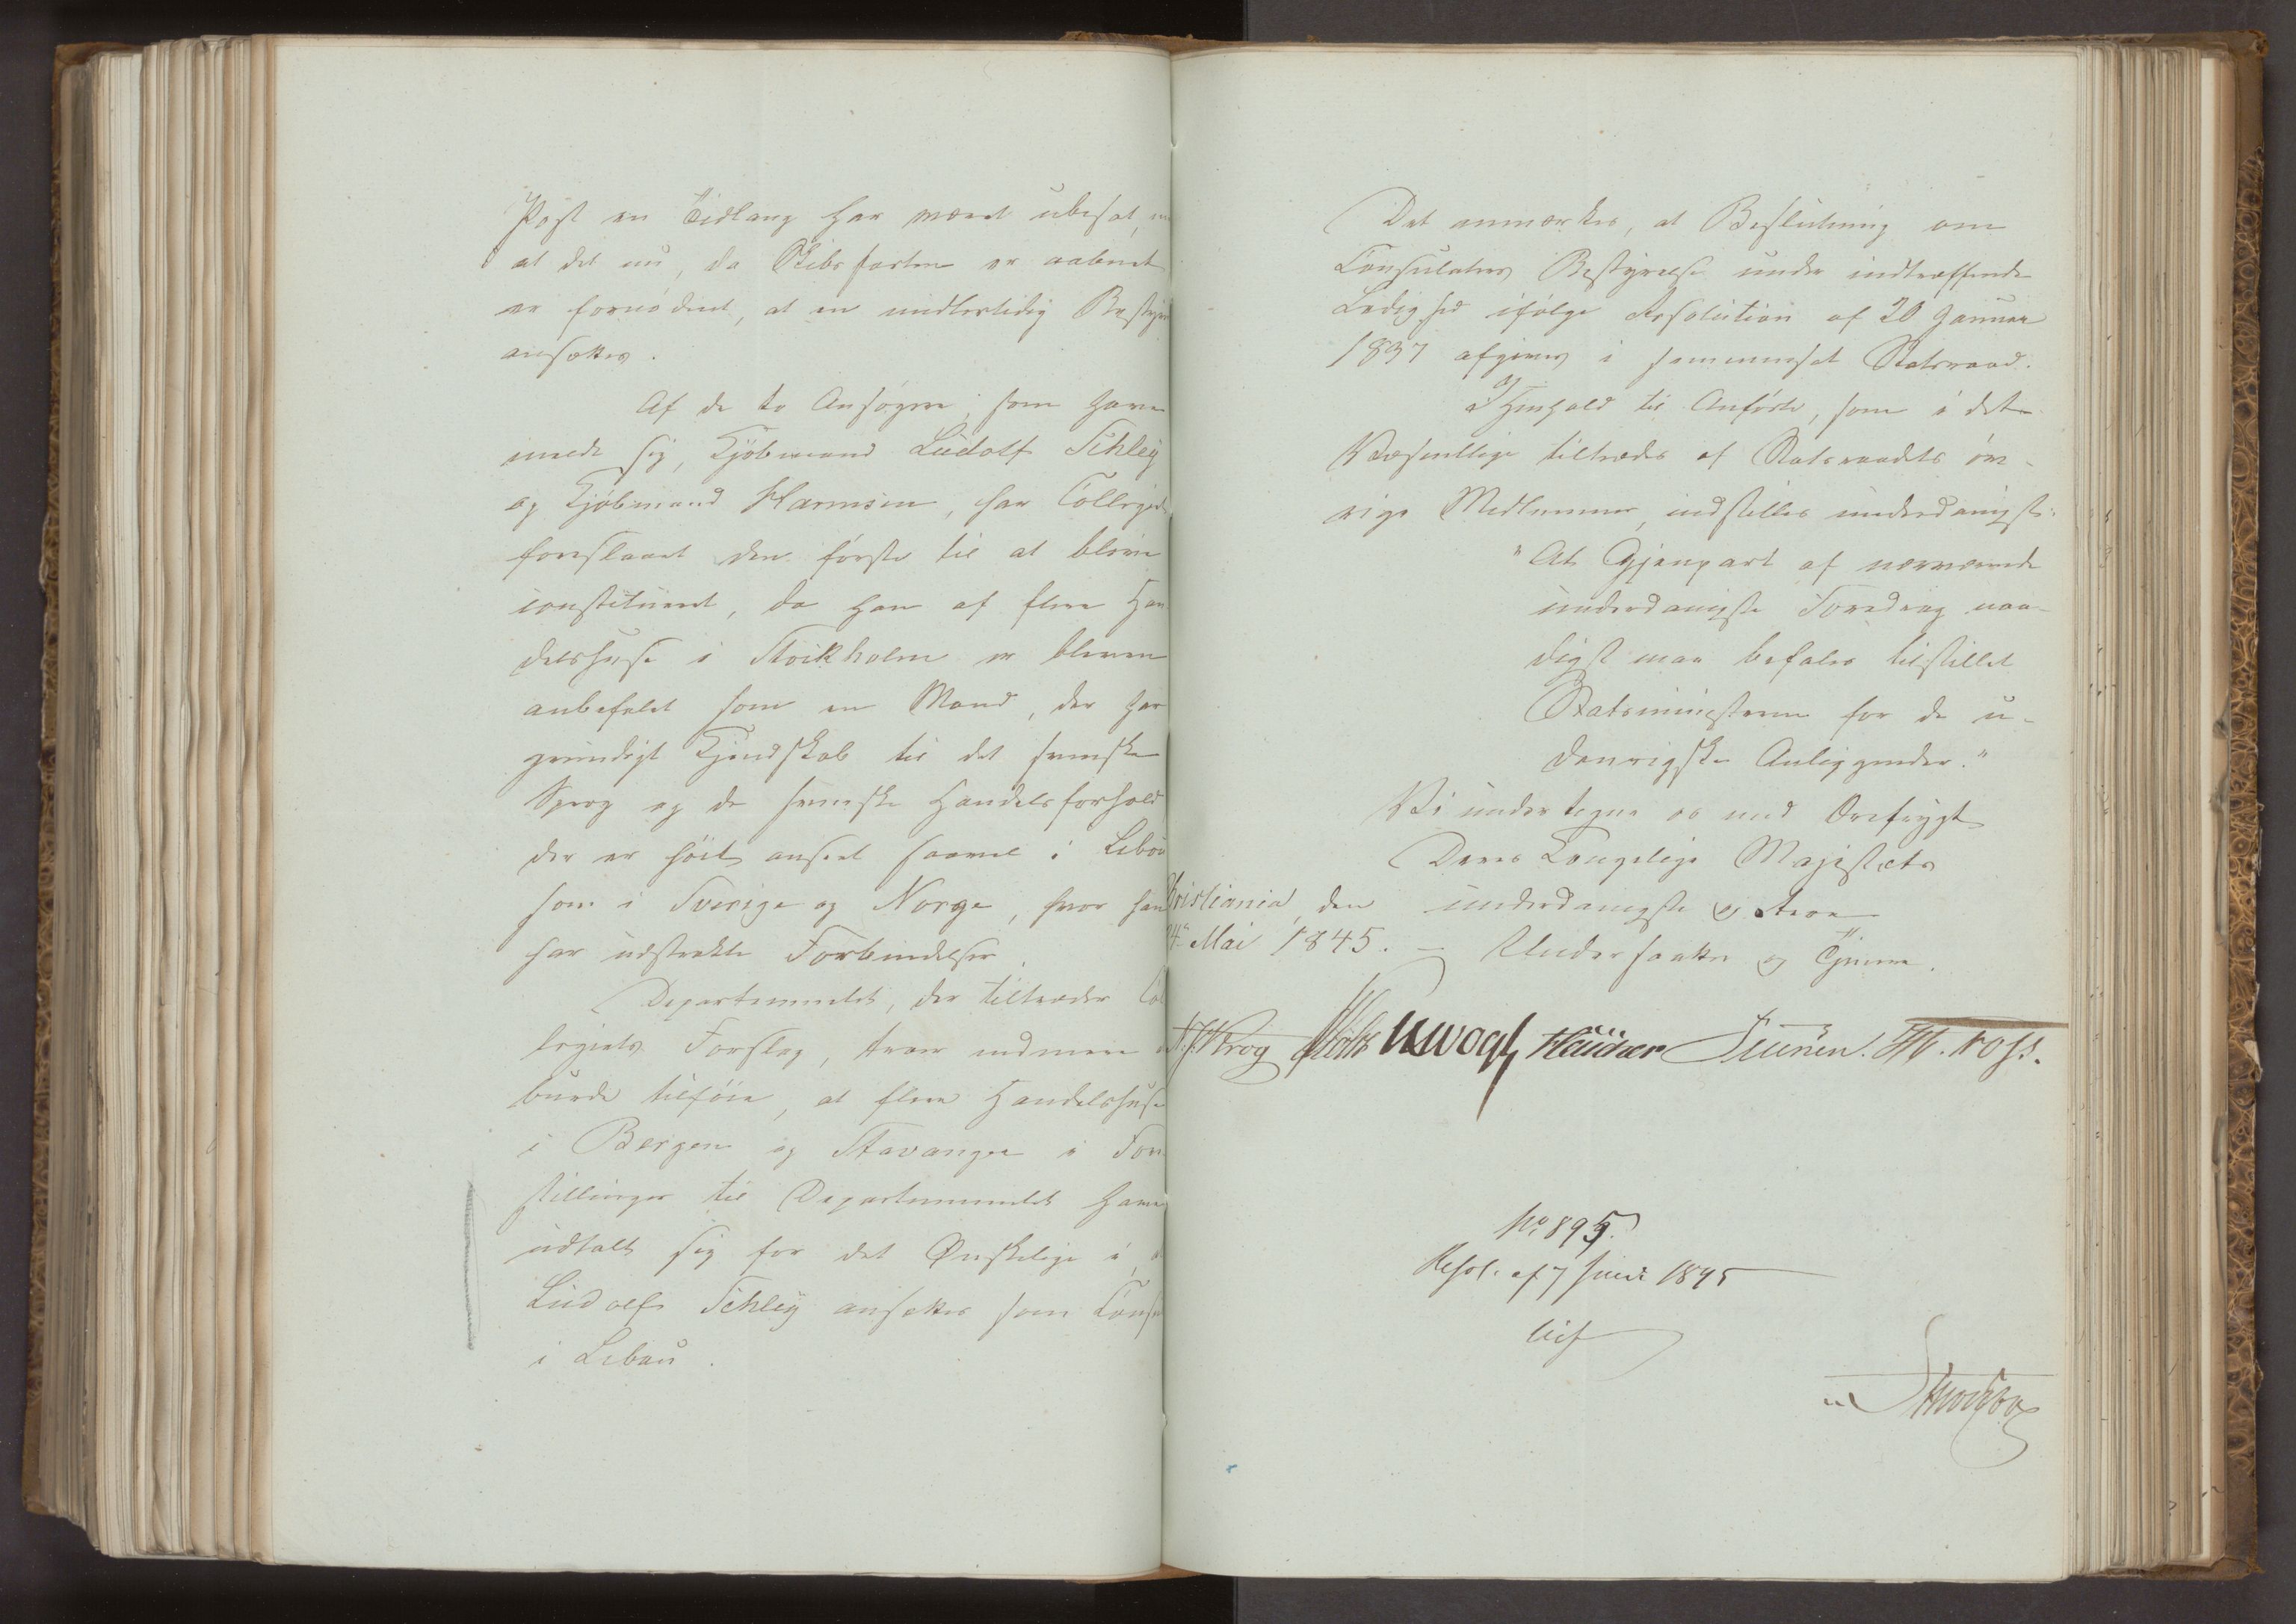 Post en Tidlang har været ubesat,
at det nu, da Skibsfarten er aabnet
er fornødent, at en midlertidig Bestyrer
ansættes.
Af de to Ansøgere, som have
meldt sig, Kjøbmand Ludolf Schley
og Kjøbmand Harmsen, har Collegiet
foreslaaet den første til at blive
constitueret, da han af flere Han
delshuse i Stockholm er bleven
anbefalet som en Mand, der har
grundigt Kjendskab til det svenske
Sprog og de svenske Handelsforhold
der er høit anseet saavel i Libau
som i Sverige og Norge, hvor han
har udstrakte Forbindelser.
Departementet, der tiltræder Col
legiets Forslag, troer endmere
burde tilføie, at flere Handelshuse
i Bergen og Stavanger i Fore
stillinger til Departementet have
udtalt sig for det Ønskelige i,
Ludolf Schley ansættes som Consul
i Libau.
Det anmærkes, at Beslutning om
Consulaters Bestyrelse under indtræffende
Ledighed ifølge Resolution af 20 Januar
1837 afgives i sammensat Statsraad.
I Henhold til Anførte, som i det
Væsentlige tiltrædes af Statsraadets øv-
rige Medlemmer, indstilles underdanigst:
"At Gjenpart af nærværende
underdanigste Foredrag naa-
digst maa befales tilstillet
Statsministeren for de u-
denrigske Anliggender."
Vi undertegne os med Ærefrygt
Deres Kongelige Majestæts
Christiania, den underdanigste og troe
24de Mai 1845. – Undersaatter og Tjenere.
Krog Holst Vogt
No 895.
Resol. af 7 Juni 1845